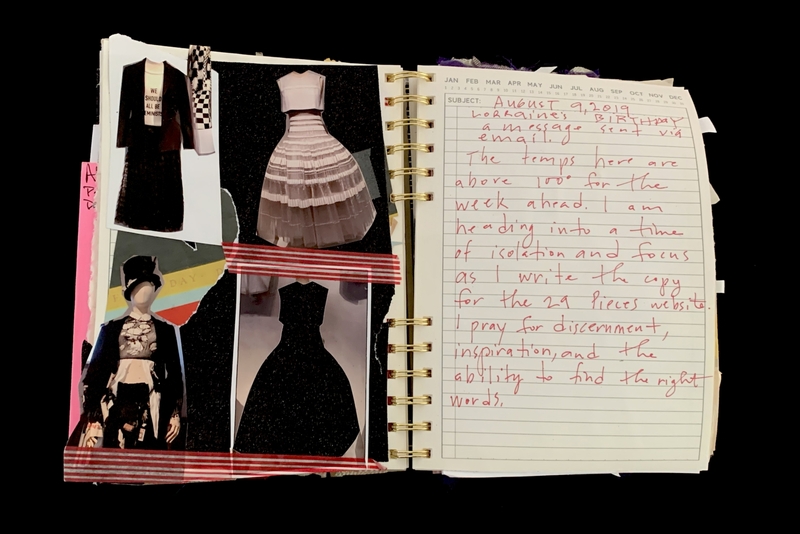 WE
SHOULD
ALL BE
FEMINISTS
DAY
JAN FEB MAR APR MAY JUN JUL AUG SEP OCT NOV DEC
SUBJECT: AUGUST 9, 2019
Lorraine's BIRTHDAY
a message sent via
email.
The temps here are
above 100° for the
week ahead. I am
heading into a time
of isolation and focus
as I write the copy
for the 29 Pieces website.
I pray for discernment,
inspiration, and the
ability to find the right
words.